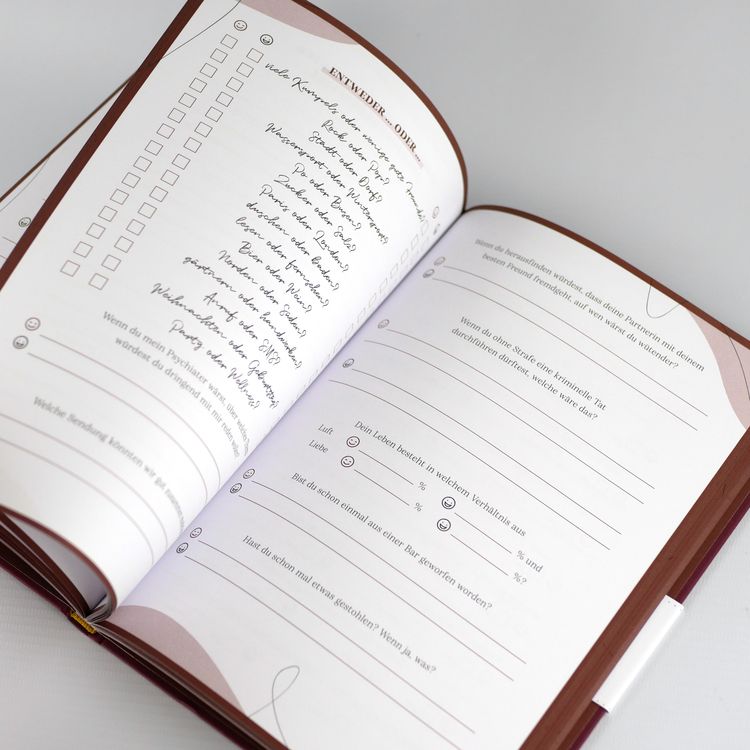 ENTWEDER ... ODER ...
viele Kumpels oder wenige gute Freunde?
Rock oder Pop?
Stadt oder Dorf?
Wassersport oder Wintersport?
Po oder Busen?
Zucker oder Salz?
Paris oder London?
duschen oder baden?
lesen oder fernsehen?
Bier oder Wein?
Norden oder Süden?
gärtnern oder handwerken?
Anruf oder SMS?
Weihnachten oder Geburtstag?
Party oder Wellness?
Wenn du mein Psychiater wärst, über welchen
würdest du dringend mit mir reden
Welche Sendung könnten wir gut
Wenn du herausfinden würdest, dass deine Partnerin mit deinem
besten Freund fremdgeht, auf wen wärst du wütender?
Wenn du ohne Strafe eine kriminelle Tat
durchführen dürftest, welche wäre das?
Dein Leben besteht in welchem Verhältnis aus
Luft % % und
Liebe % %?
Bist du schon einmal aus einer Bar geworfen worden?
Hast du schon mal etwas gestohlen? Wenn ja, was?